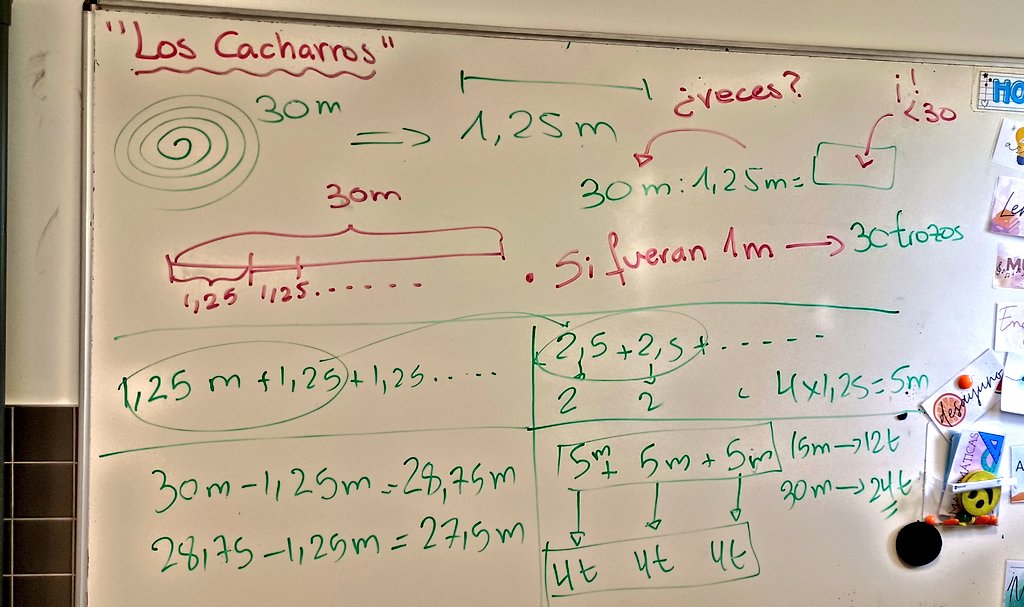 "Los Cacharros"
30m
=> 1,25m
¿veces?
¡!
<30
30m:1,25m=
30m
1,25 1,25.......
. Si fueran 1m → 30 trozos
1,25 m +1,25+1,25.....
2,5+2,5+......
2 2
4x1,25=5m
30m-1,25m=28,75m
28,75-1,25m=27,5m
5m+ 5m+5m
4t 4t 4t
15m→12t
30m→24t
HO
desayuno